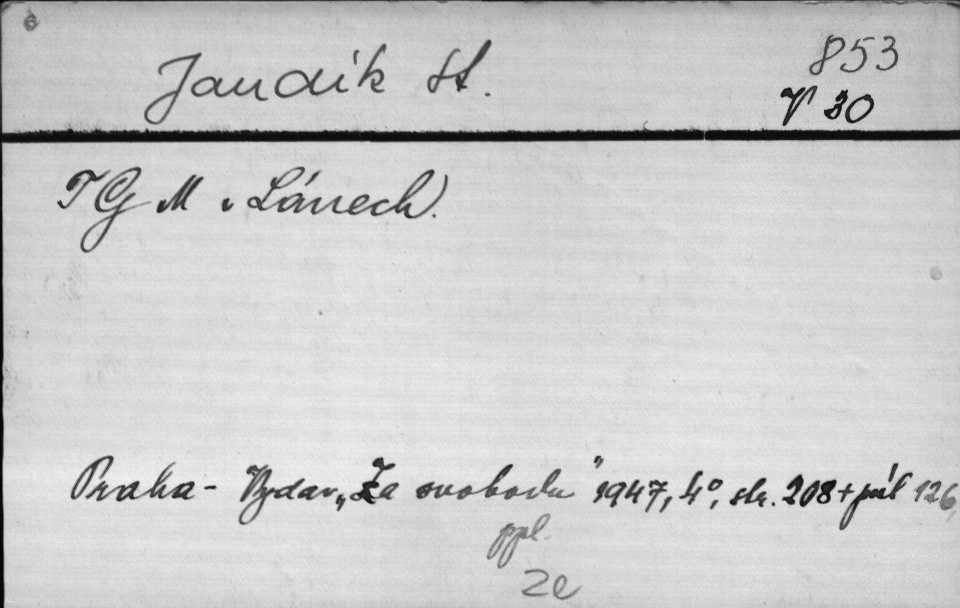 6
Jandík St.
853
V 30
TGM v Lánech.
Praha - Vydav. „Za svobodu" 1947, 4°, str. 208 + příl 126,
ppl.
Ze